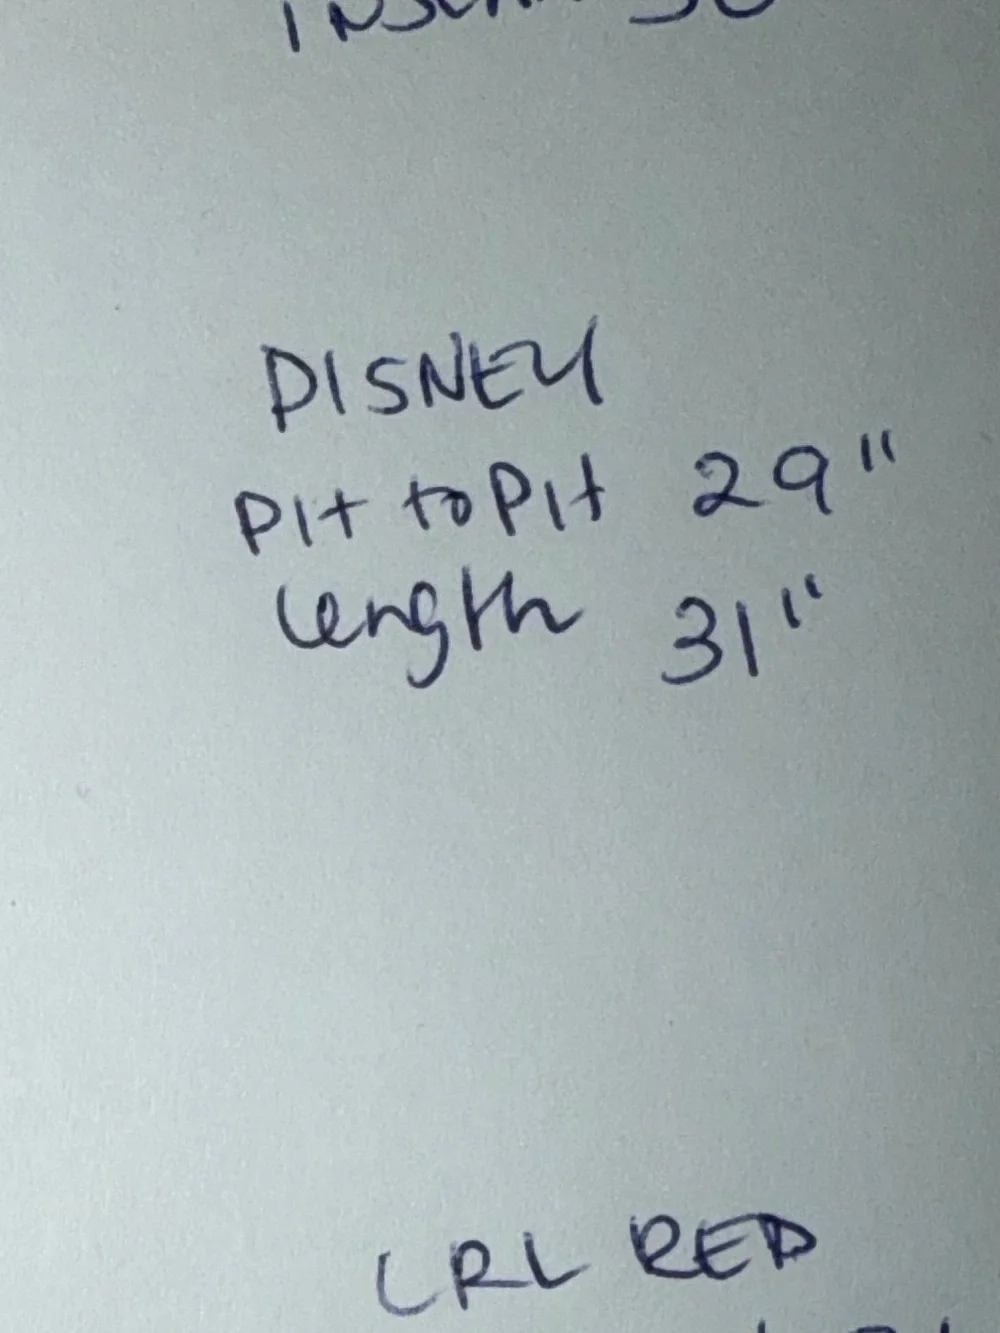 DISNEY
Pit to Pit 29"
length 31"
LRL RED